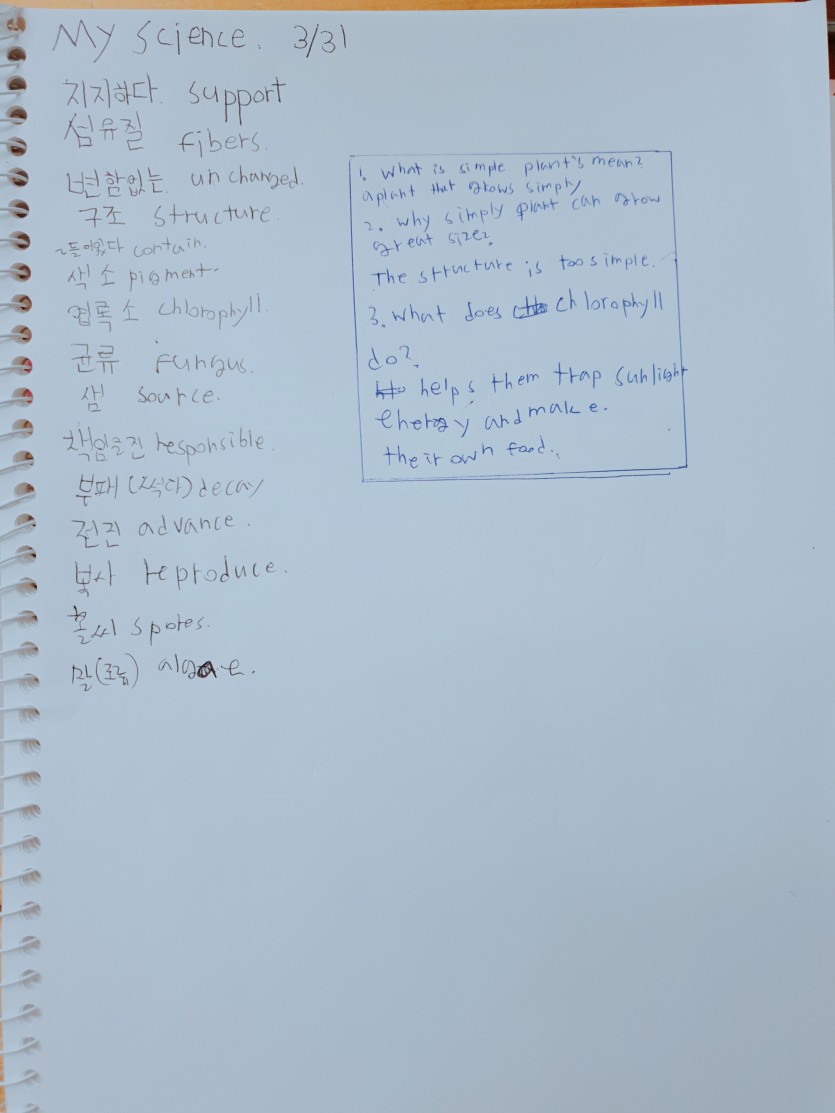 My science. 3/31
지지하다. support
섬유질 fibers.
변함없는. unchanged.
구조 structure.
~들어있다 contain.
색소 pigment.
엽록소 chlorophyll.
균류 fungus.
샘 source.
책임을진 responsible.
부패(썩다) decay
전진 advance.
복사 reproduce.
홀씨 spores.
말(조류) algae.
1. What is simple plant's mean?
a plant that grows simply
2. Why simply plant can grow
great size?
The structure is too simple.
3. What does chlorophyll
do?
helps them trap sunlight
energy and make.
their own food.